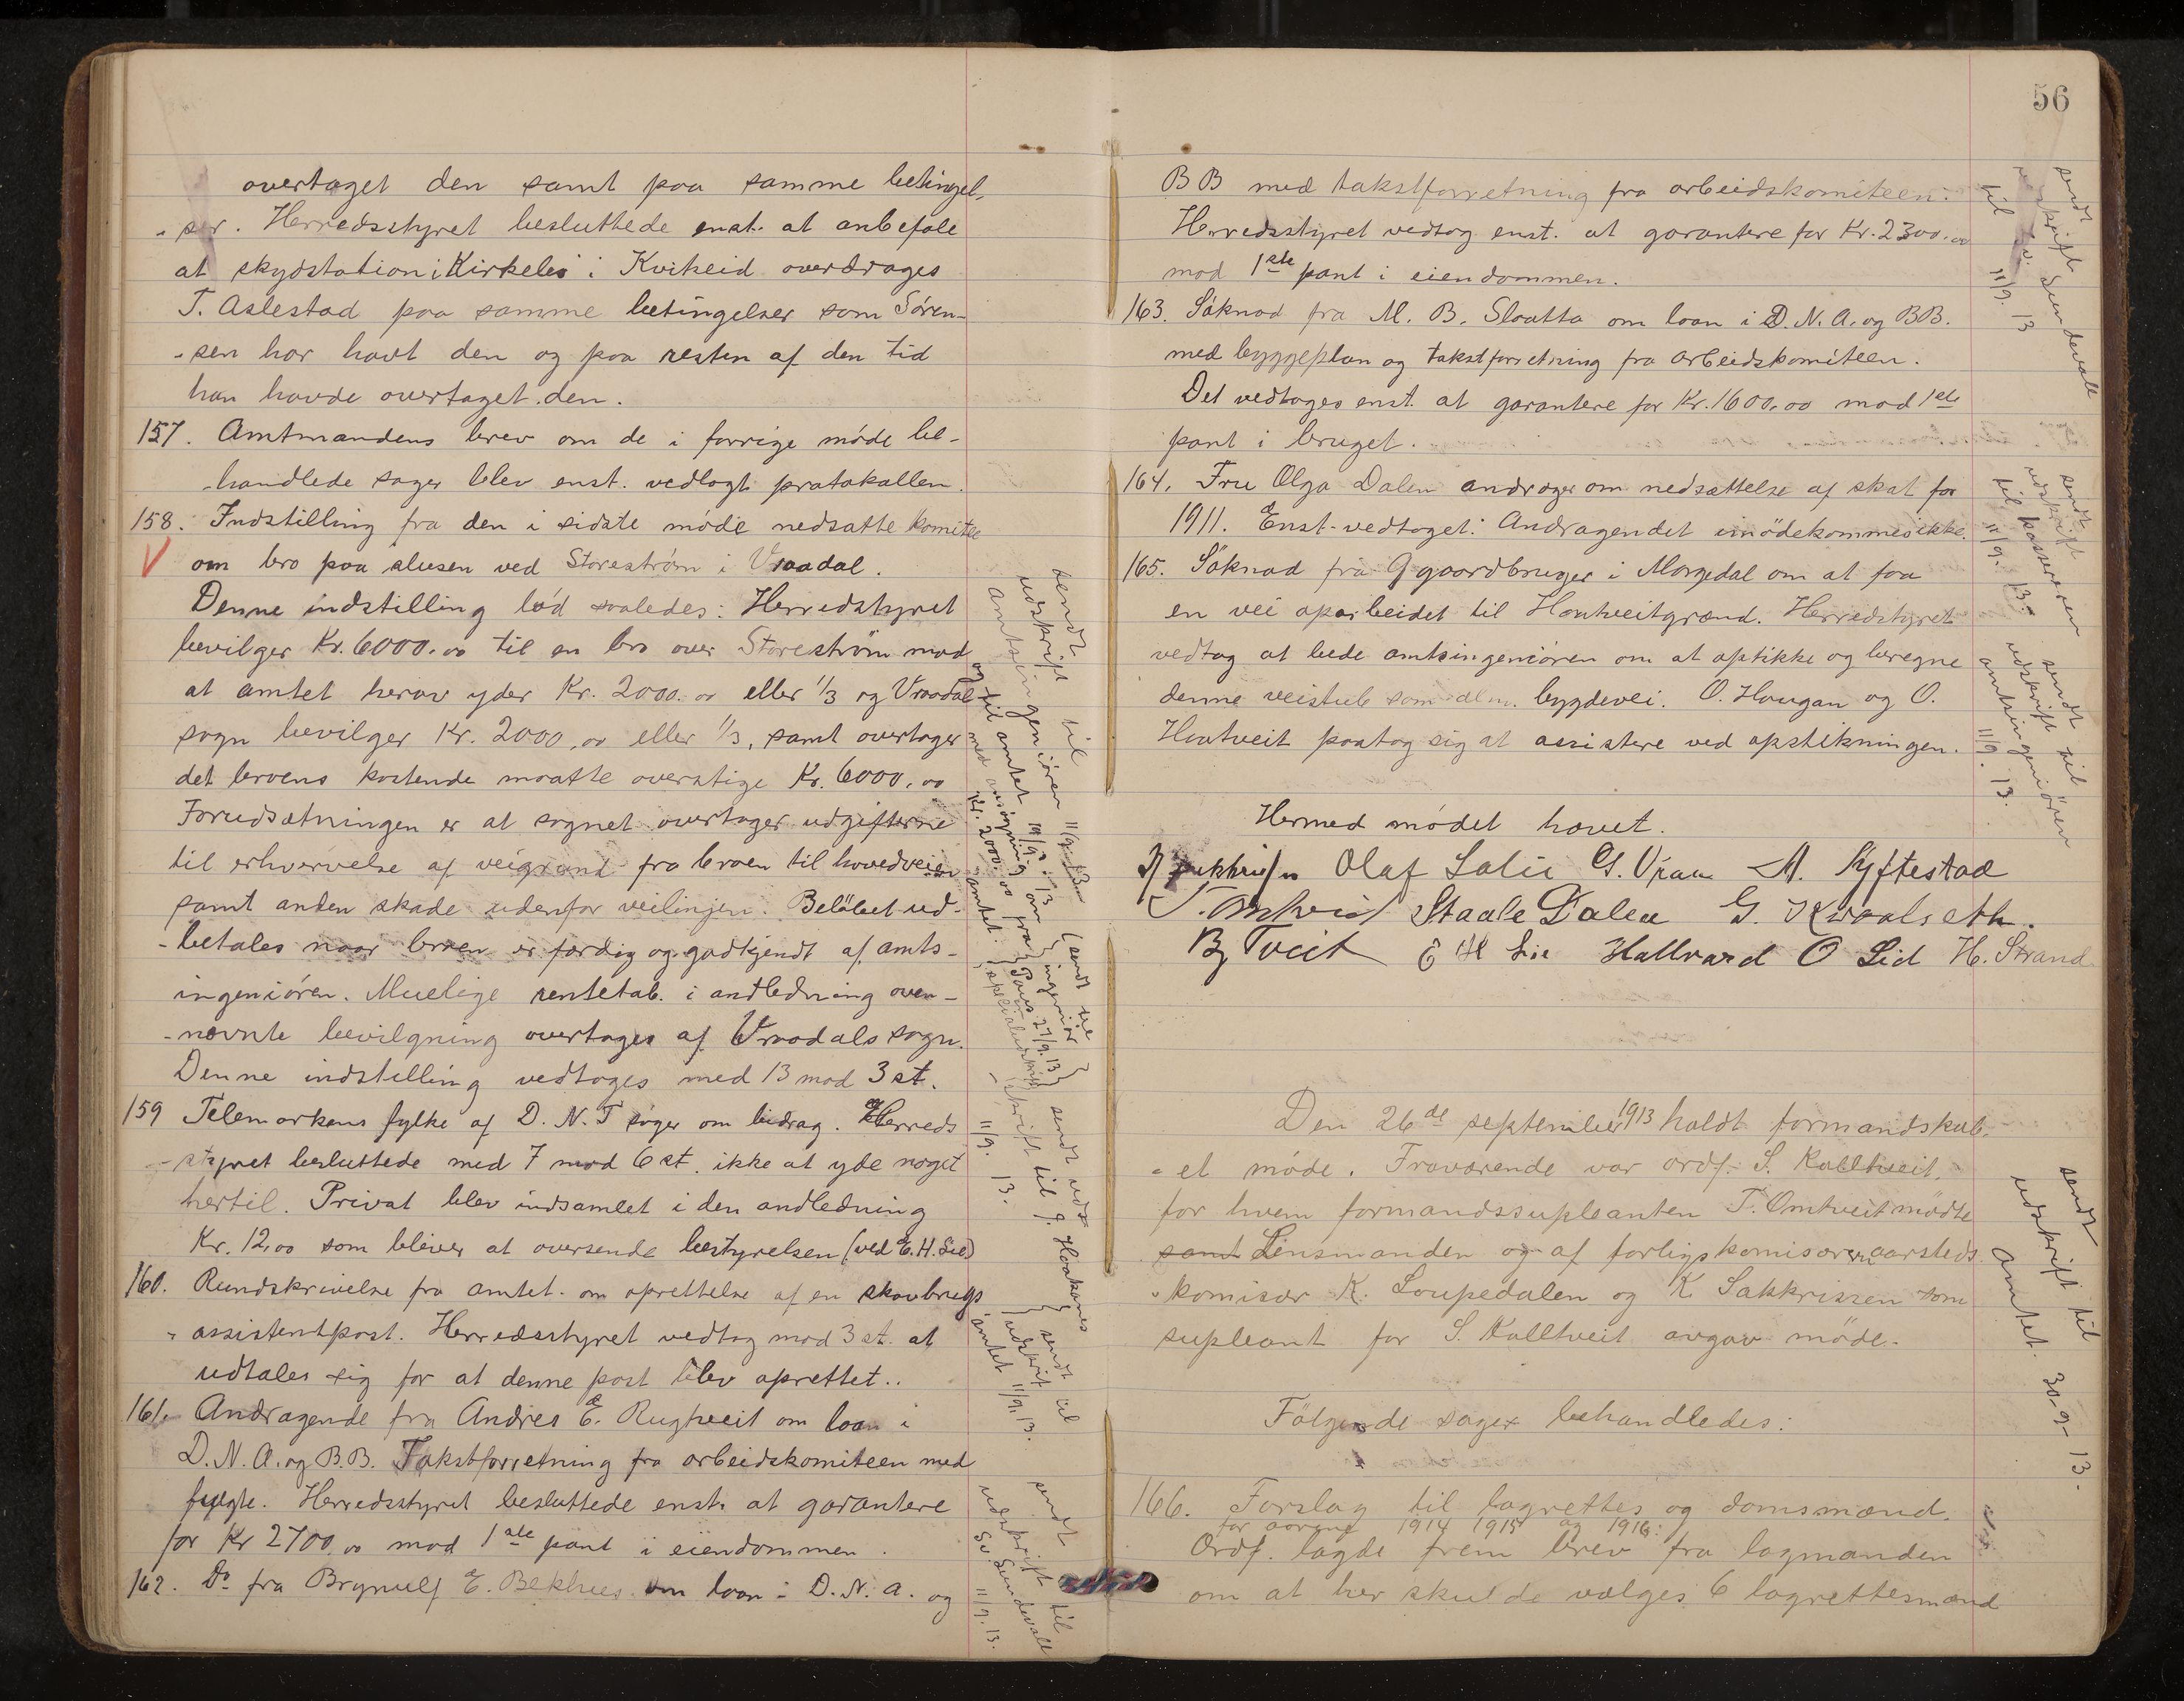 overtaget den samt paa samme betingel-
-ser. Herredsstyret besluttede enst. at anbefale
at skydsstation i Kirkebø i Kviteid overdrages
T. Aslestad paa samme betingelser som Sören-
-sen har havt den og paa resten af den tid
han havde overtaget den.
157. Amtmandens brev om de i forrige möde be-
-handlede sager blev enst. vedlagt protokollen.
158. Indstilling fra den i sidste möde nedsatte komite
V om bro paa slusen ved Storeström i Vraadal.
Denne indstilling löd saaledes: Herredstyret
bevilger Kr. 6000.00 til en bro over Storeström mod
at amtet herav yder Kr. 2000.00 eller 1/3 og Vraadal
sogn bevilger Kr. 2000,00 eller 1/3, samt overtager
det broens kostende maatte overstige Kr. 6000,00
Forudsætningen er at sognet overtager udgifterne
til erhvervelse af veigrund fra broen til hovedveien
samt anden skade udenfor veilinjen. Belöbet ud-
-betales naar broen er færdig og godkjendt af amts-
ingeniören. Muelige rentetab. i anledning oven-
-nævnte bevilgning overtages af Vraadals sogn.
Denne indstilling vedtoges med 13 mod 3 st.
159 Telemarkens fylke af D. N. T söger om bidrag. Herreds
-styret besluttede med 7 mod 6 st. ikke at yde noget
hertil. Privat blev indsamlet i den andledning
Kr. 12,00 som bliver at oversende bestyrelsen (ved E. H. Lie)
160. Rundskrivelse fra amtet om oprettelse af en skovbrugs-
-assistentpost. Herredsstyret vedtog mod 3 st. at
udtales sig for at denne post blev oprettet..
161. Andragende fra Andres E. Rugtveit om laan i
D. N. A. og B.B. Takstforretning fra arbeidskomiteen med
fulgte. Herredsstyret besluttede enst. at garantere
for Kr 2700,00 mod 1ste pant i eiendommen.
162. Do fra Brynulf E. Bekhus om laan i D. N. A. og
sendt til
udskrift
amtsingeniören 11/9. 13
og til amtet 19/9. 13
med ansögning om
Kr. 2000.00 fra
amtet.
(sendt til
ingeniör
Paus. 27/9. 13)
sendt uds-
skrift til J.
11/9. 13.
sendt til
udskrift
amtet 11/9. 13.
sendt
udskrift til
Sv. Sundevall
11/9. 13.
56
BB med takstforretning fra arbeidskomiteen.
Herredsstyret vedtog enst. at garantere for Kr. 2300.00
mod 1ste pant i eiendommen.
163. Söknad fra M. B. Slaatta om laan i D. N. A. og BB.
med byggeplan og takstforretning fra arbeidskomiteen.
Det vedtoges enst. at garantere for Kr. 1600.00 mod 1ste
pant i bruget.
164. Fru Olga Dalen andrager om nedsættelse af skat for
1911. Enst. vedtaget: Andragendet imödekommes ikke.
165. Söknad fra 9 gaardbruger i Morgedal om at faa
en vei oparbeidet til Hontveitgrend. Herredstyret
vedtog at bede amtsingeniören om at opstikke og beregne
denne veistub som alm. bygdevei. O. Haugan og O.
Hontveit paatog sig at assistere ved opstikningen.
Hermed mödet hævet.
Olaf Lalie G. Vraa M. Kyftestad
T. Omtveit Staale Dalen G. Kvaalseth.
B Tveit E H Lie Hallvard O Lid H. Strand
Den 26de september 1913 holdt formandskab-
-et möde. Fraværende var ordf. S. Kalltveit,
for hvem formandssupleanten T. Omtveit mödte
samt Lensmanden og af forligskomisærer aarsteds
-komisær K. Loupedalen og K. Sakkrissen som
supleant for S. Kalltveit avgav möde.
Fölgende sager behandledes:
166. Forslag til lagrettes og domsmænd.
for aarene 1914 1915 og 1916:
Ordf. lagde frem brev fra lagmanden
om at her skulde vælges 6 lagrettesmænd
sendt
udskrift
til Sv. Sundevall
11/9. 13
sendt
udskrift
til kassereren
11/9. 13.
sendt til
udskrift
amtsingeniören
11/9. 13.
sendt
udskrift til
amtet. 30-9-13.